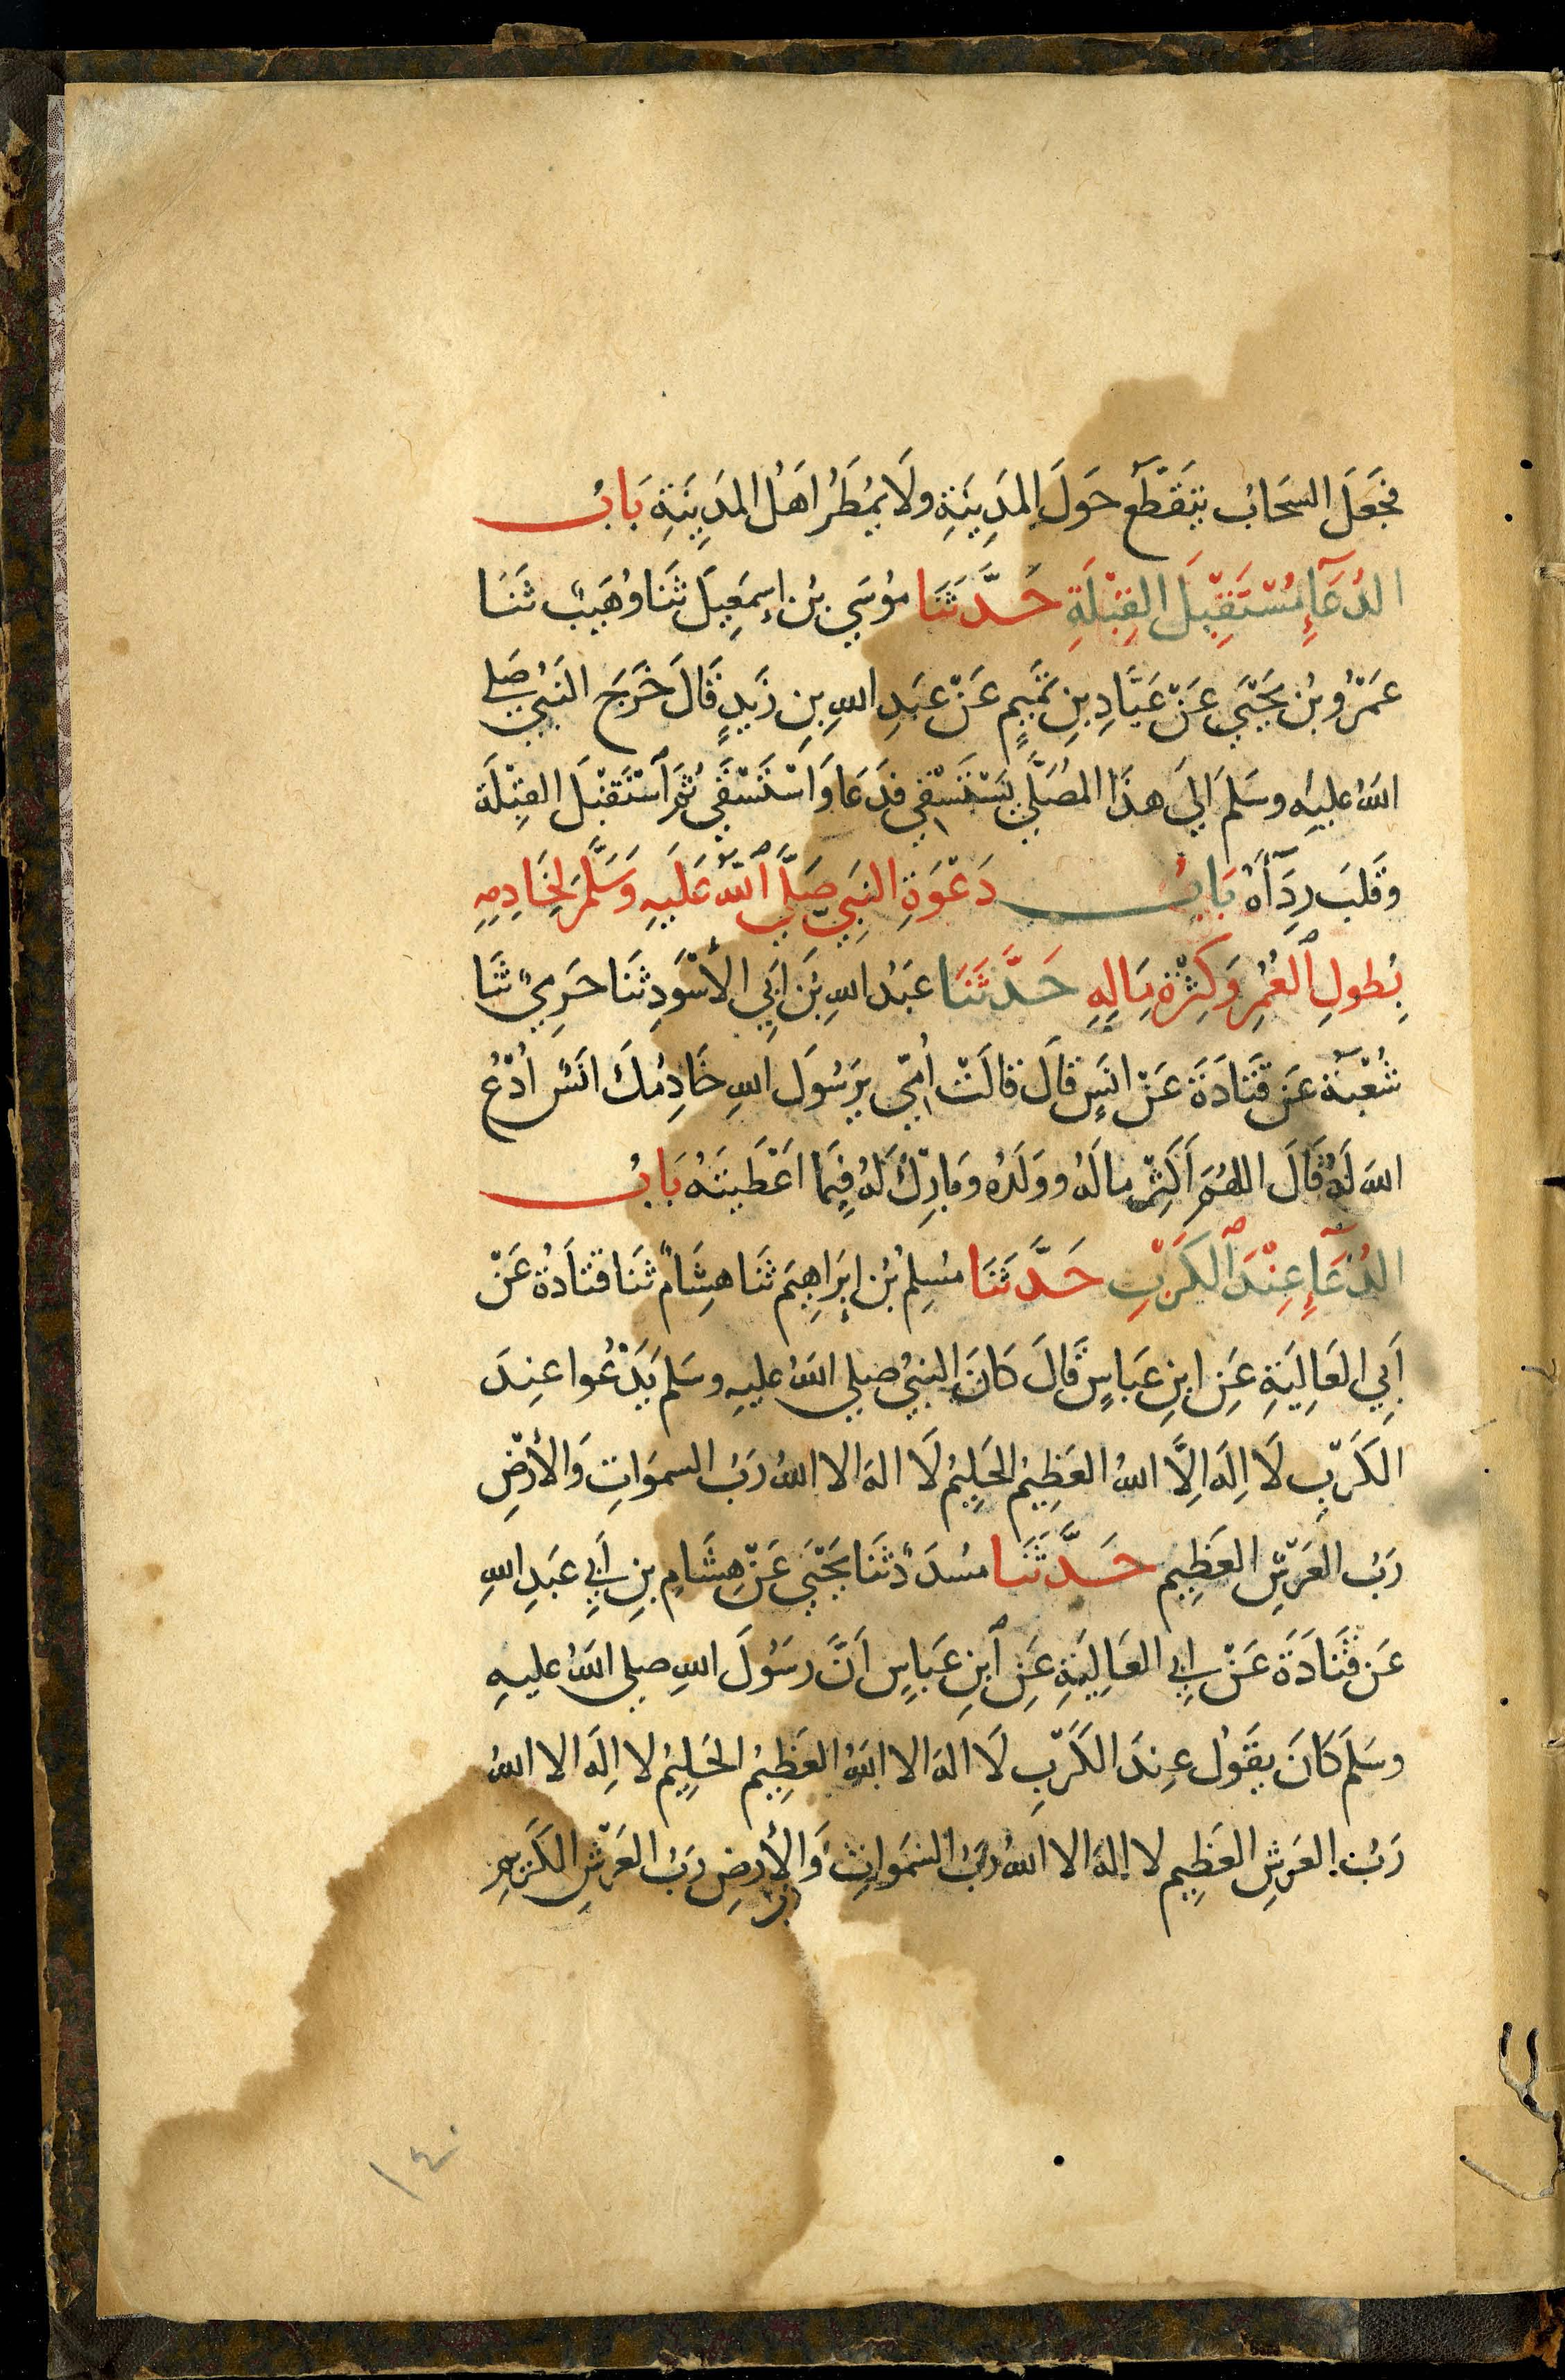 فَجَعَلَ السَحَابُ يَتَقَطَّع حَولَ المَدِينَةِ ولَا يُمطَرُ اَهلُ المَدِينَةِ بَابُ
الدُعَآءِ مُسْتَقبِلَ القِبْلَةِ حَدَّثَنَا مُوسَي بنُ إِسمَعِيلَ ثَنَا وُهَيبٌ ثَنَا
عَمْرُو بنُ يَحْيَي عَنْ عَبَّادِ بنِ تَمِيمٍ عَنْ عَبدِ اللهِ بنِ زَيدٍ قَالَ خَرَجَ النَبيُ صَلي
اللهُ عليهِ وسَلمَ اِلَي هذَا المُصَلَّي يَسْتَسْقِي فَدَعَا وَاسْتَسْقَي ثُمَّ ٱسْتَقْبَلَ القِبْلَةَ
وقَلَبَ رِدَآءَهُ بَابُ دَعْوَةِ النَبِيِّ صَلَّي ٱللهُ عَلَيهِ وَسَلَّمَ لِخَادِمِهِ
بِطُولِ ٱلعُمُرِ وَكِثْرَةِ مَالِهِ حَدَّثَنَا عَبدُ اللهِ بنُ اَبِي الأَسْوَدِ ثَنَا حَرَمِيٌ ثَنَا
شُعْبَةُ عَن قَتَادَةَ عَنْ انَسٍ قَالَ قَالَتْ اُمِّي يرَسُولَ اللهِ خَادِمُكَ انَسٌ ادْعُ
اللهَ لَهُ قَالَ اللهُمَّ اَكثِرْ مالَهُ وولَدَهُ وبَارِكْ لَهُ فِيمَا اَعْطَيتَهُ بَابُ
الدُعَآءِ عِنْدَ ٱلكَرْبِ حَدَّثَنَا مُسلِمُ بنُ إِبرَاهِيمَ ثَنَا هِشَامٌ ثَنَا قتَادَةُ عَنْ
أَبِي العَالِيَةِ عَنِ ابنِ عَبَاسٍ قَالَ كَانَ النبيُ صلي اللهُ عليهِ وسَلمَ يَدْعُوا عِندَ
الكَرْبِ لَا اِلَهَ اِلَّا اللهُ العَظِيمُ الحَلِيمُ لَا اله الا اللهُ رَبُ السموَاتِ وَالأَرْضِ
رَبُ العَرْشِ العَظِيمِ حَدَّثَنَا مُسدَدٌ ثَنَا يَحْيَي عَنْ هِشَامِ بنِ أَبِي عَبدِ اللهِ
عَن قَتَادَةَ عَنْ اَبِي العَالِيَةِ عَنِ ٱبنِ عَبَاسٍ اَنَّ رسَوُلَ اللهِ صلي اللهُ عليهِ
وسَلمَ كَانَ يقَوُلُ عِندَ الكَرْبِ لَا اله الا اللهُ العَظِيمُ الحَلِيمُ لا اِلَهَ الا اللهُ
رَبُ العَرشِ العَظِيمِ لا اِلهَ الا اللهُ رَبُ السَمَوَاتِ وَالأَرضِ رَبُ العَرْشِ الكَرِيمِ
١٤٠